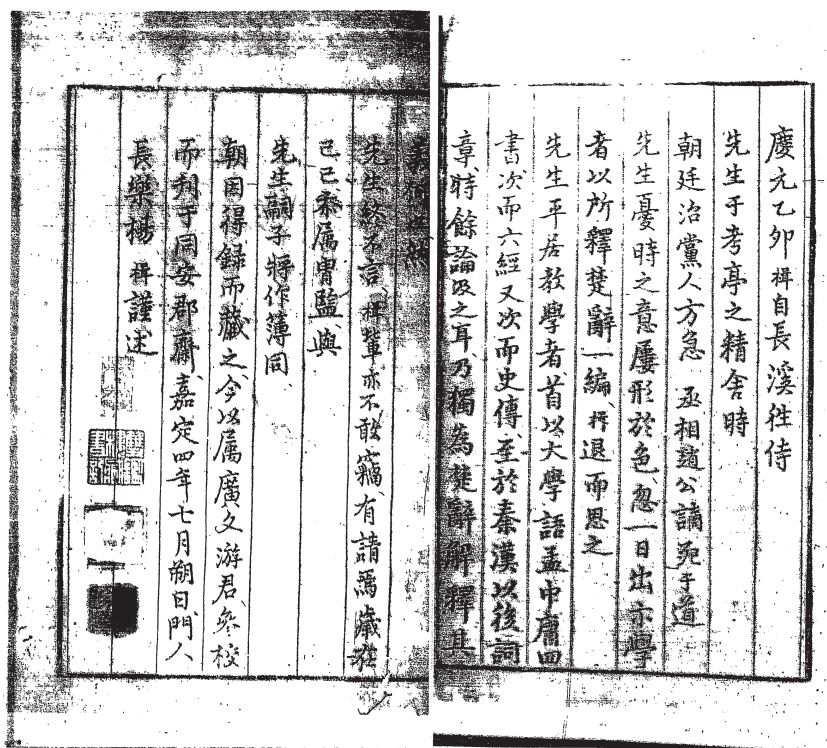 慶元乙卯楫自長溪徃侍
先生于考亭之精舍時
朝廷治黨人方急 丞相趙公謫死于道
先生憂時之意屢形於色忽一日出示學
者以所釋楚辭一編楫退而思之
先生平居教學者首以大學語孟中庸四
書次而六經又次而史傳至於秦漢以後詞
章特餘論及之耳乃獨為楚辭解釋其
義何也然
先生終不言楫輩亦不敢竊有請焉歲在
己巳忝属冑監與
先生嗣子將作簿同
朝因得録而藏之今以属廣文游君參校
而刊于同安郡齋嘉定四年七月朔日門人
長樂楊 楫謹述